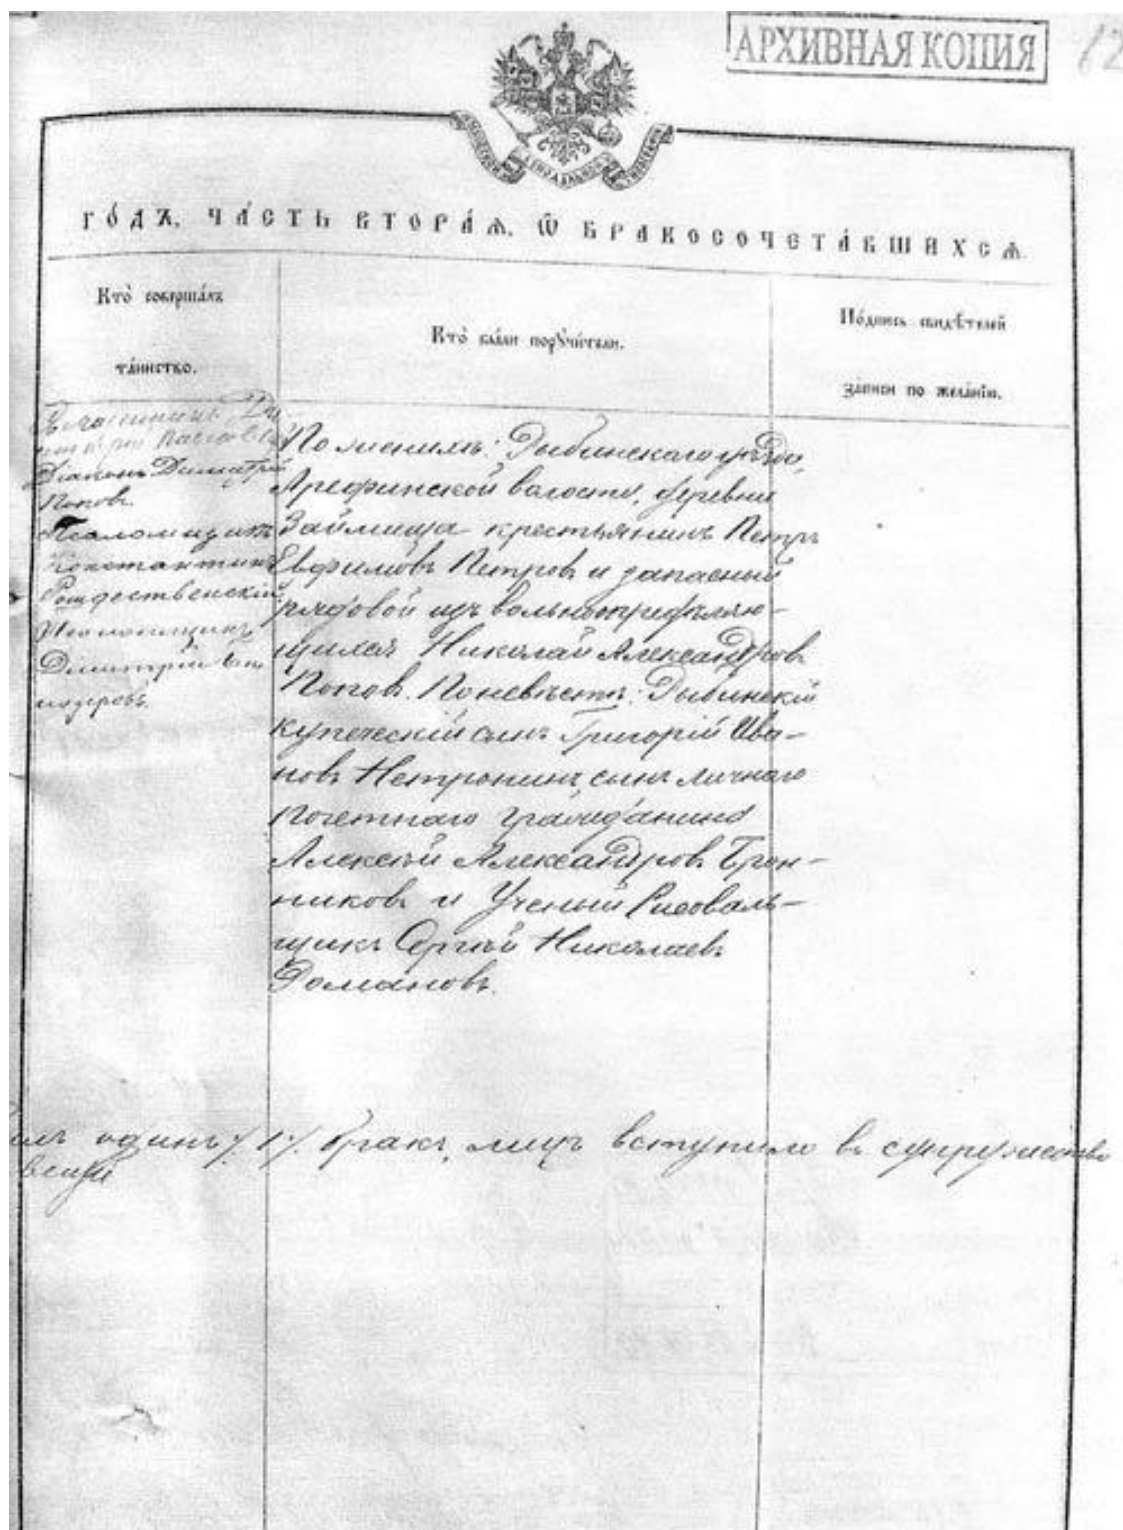 АРХИВНАЯ КОПИЯ
12
го́дъ, ча́сть втора́ѧ, ѡ҆ бракосочета́вшихсѧ
Кто̀ соверша́лъ
та́инство.
Кто̀ бы́ли порꙋчи́тели.
По́дпись свидѣ́телей
за́писи по жела́нїю.
Діаконъ Димитрій
Поповъ.
Псаломщикъ
Константинъ
Рождественскій
Псаломщикъ
Димитрій
По женихѣ: Рыбинскаго уѣзда,
Арефинской волости, деревни
Займища крестьянинъ Петръ
Евфимовъ Петровъ и запасный
рядовой изъ вольноопредѣляю-
щихся Николай Александровъ
Поповъ. По невѣстѣ: Рыбинскій
купеческій сынъ Григорій Ива-
новъ сынъ личнаго
почетнаго гражданина
Алексѣй Александровъ Брон-
никовъ и Ученый Рисоваль-
щикъ Сергѣй Николаевъ
Романовъ.
одинъ /1/ бракъ, лицъ вступило въ супружество